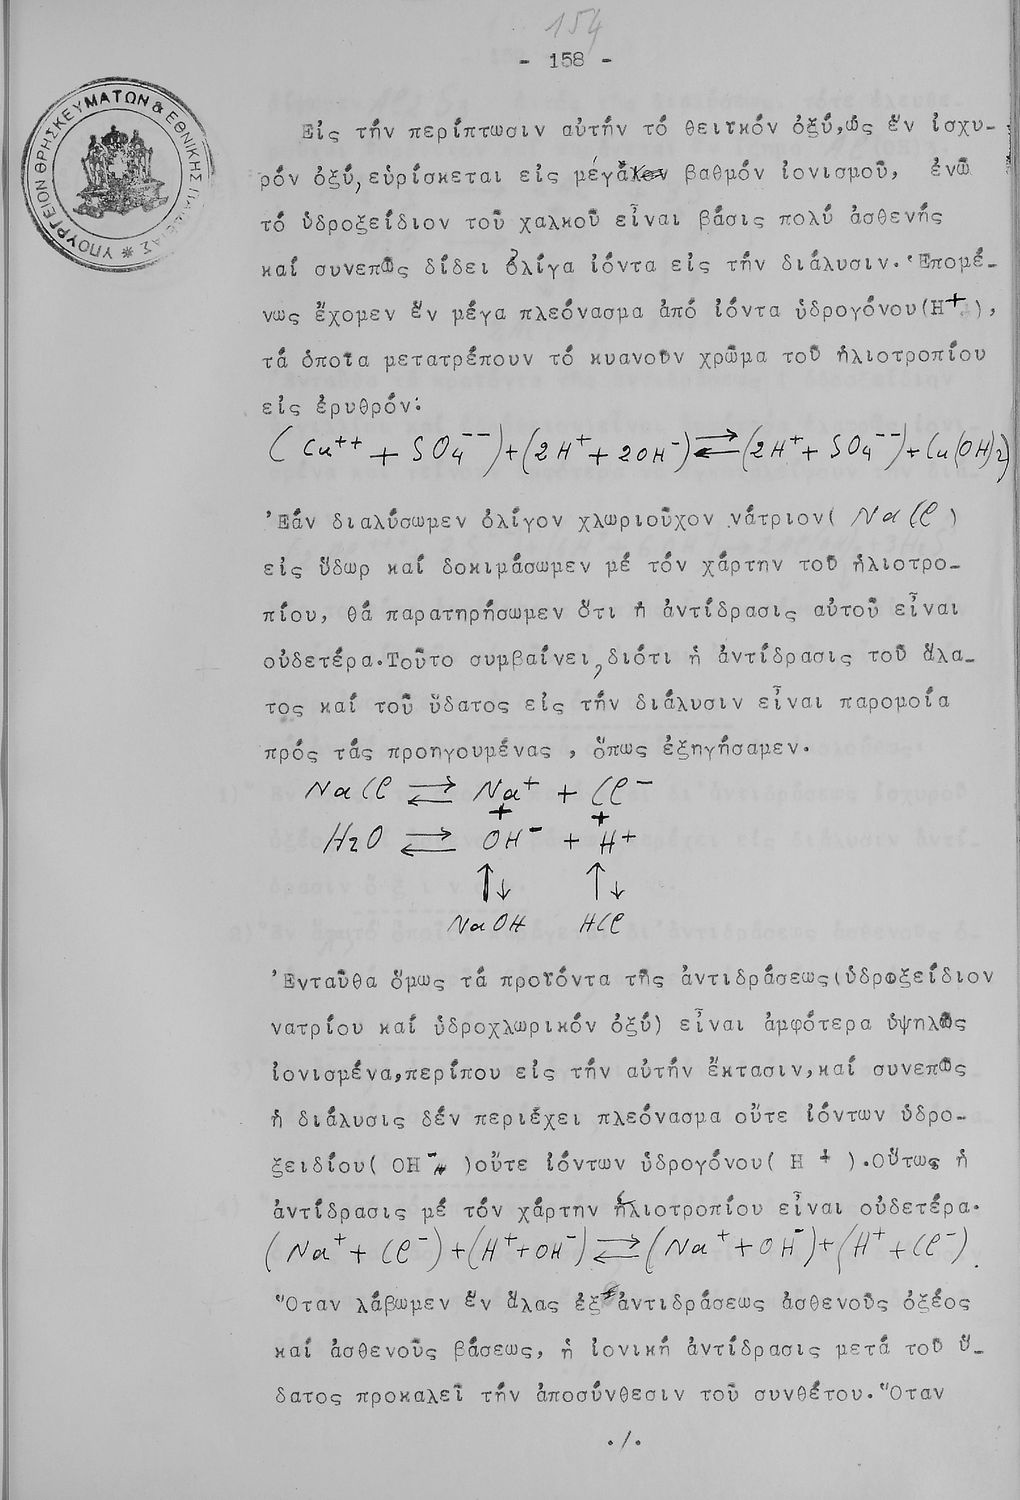 154
- 158 -
ΥΠΟΥΡΓΕΙΟΝ ΘΡΗΣΚΕΥΜΑΤΩΝ & ΕΘΝΙΚΗΣ
Εἰς τήν περίπτωσιν αὐτήν τό θειϊκόν ὀξύ, ὡς ἕν ἰσχυ-
ρόν ὀξύ, εὑρίσκεται εἰς μέγαν βαθμόν ἰονισμοῦ, ἐνῶ
τό ὑδροξείδιον τοῦ χαλκοῦ εἶναι βάσις πολύ ἀσθενής
καί συνεπῶς δίδει ὀλίγα ἰόντα εἰς τήν διάλυσιν. Ἑπομέ-
νως ἔχομεν ἕν μέγα πλεόνασμα ἀπό ἰόντα ὑδρογόνου(H+ ),
τά ὁποῖα μετατρέπουν τό κυανοῦν χρῶμα τοῦ ἡλιοτροπίου
εἰς ἐρυθρόν:
(Cu++ + SO4--)+(2H+ + 2OH-) ⇄ (2H+ + SO4--)+Cu(OH)2)
Ἐάν διαλύσωμεν ὀλίγον χλωριοῦχον νάτριον( NaCl )
εἰς ὕδωρ καί δοκιμάσωμεν μέ τόν χάρτην τοῦ ἡλιοτρο-
πίου, θά παρατηρήσωμεν ὅτι ἡ ἀντίδρασις αὐτοῦ εἶναι
οὐδετέρα. Τοῦτο συμβαίνει, διότι ἡ ἀντίδρασις τοῦ ἅλα-
τος καί τοῦ ὕδατος εἰς τήν διάλυσιν εἶναι παρομοία
πρός τάς προηγουμένας , ὅπως ἐξηγήσαμεν.
NaCl ⇄ Na+ + Cl-
+ +
H2O ⇄ OH- + H+
↑↓ ↑↓
NaOH HCl
Ἐνταῦθα ὅμως τά προϊόντα τῆς ἀντιδράσεως(ὑδροξείδιον
νατρίου καί ὑδροχλωρικόν ὀξύ) εἶναι ἀμφότερα ὑψηλῶς
ἰονισμένα, περίπου εἰς τήν αὐτήν ἔκτασιν, καί συνεπῶς
ἡ διάλυσις δέν περιέχει πλεόνασμα οὔτε ἰόντων ὑδρο-
ξειδίου( OH- )οὔτε ἰόντων ὑδρογόνου( H + ). Οὕτως ἡ
ἀντίδρασις μέ τόν χάρτην ἡλιοτροπίου εἶναι οὐδετέρα.
(Na+ + Cl-)+(H+ + OH-) ⇄ (Na+ + OH-)+(H+ + Cl-).
Ὅταν λάβωμεν ἕν ἅλας ἐξ ἀντιδράσεως ἀσθενοῦς ὀξέος
καί ἀσθενοῦς βάσεως, ἡ ἰονική ἀντίδρασις μετά τοῦ ὕ-
δατος προκαλεῖ τήν ἀποσύνθεσιν τοῦ συνθέτου. Ὅταν
./.